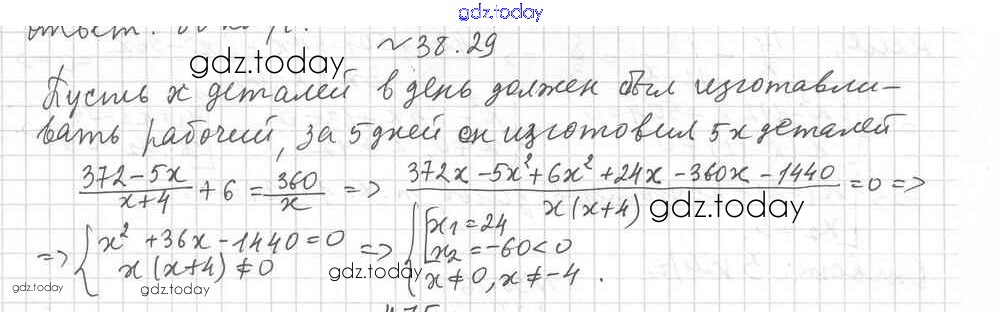 gdz.today
ответ:
№38.29
gdz.today
Пусть x деталей в день должен был изготавли-
вать рабочий, за 5 дней он изготовил 5x деталей
(372-5x)/(x+4) + 6 = 360/x => (372x-5x²+6x²+24x-360x-1440)/(x(x+4)) = 0 =>
gdz.today
=> { x²+36x-1440=0 => { [ x₁=24
x(x+4)≠0 x₂=-60<0
x≠0, x≠-4.
gdz.today gdz.today gdz.today